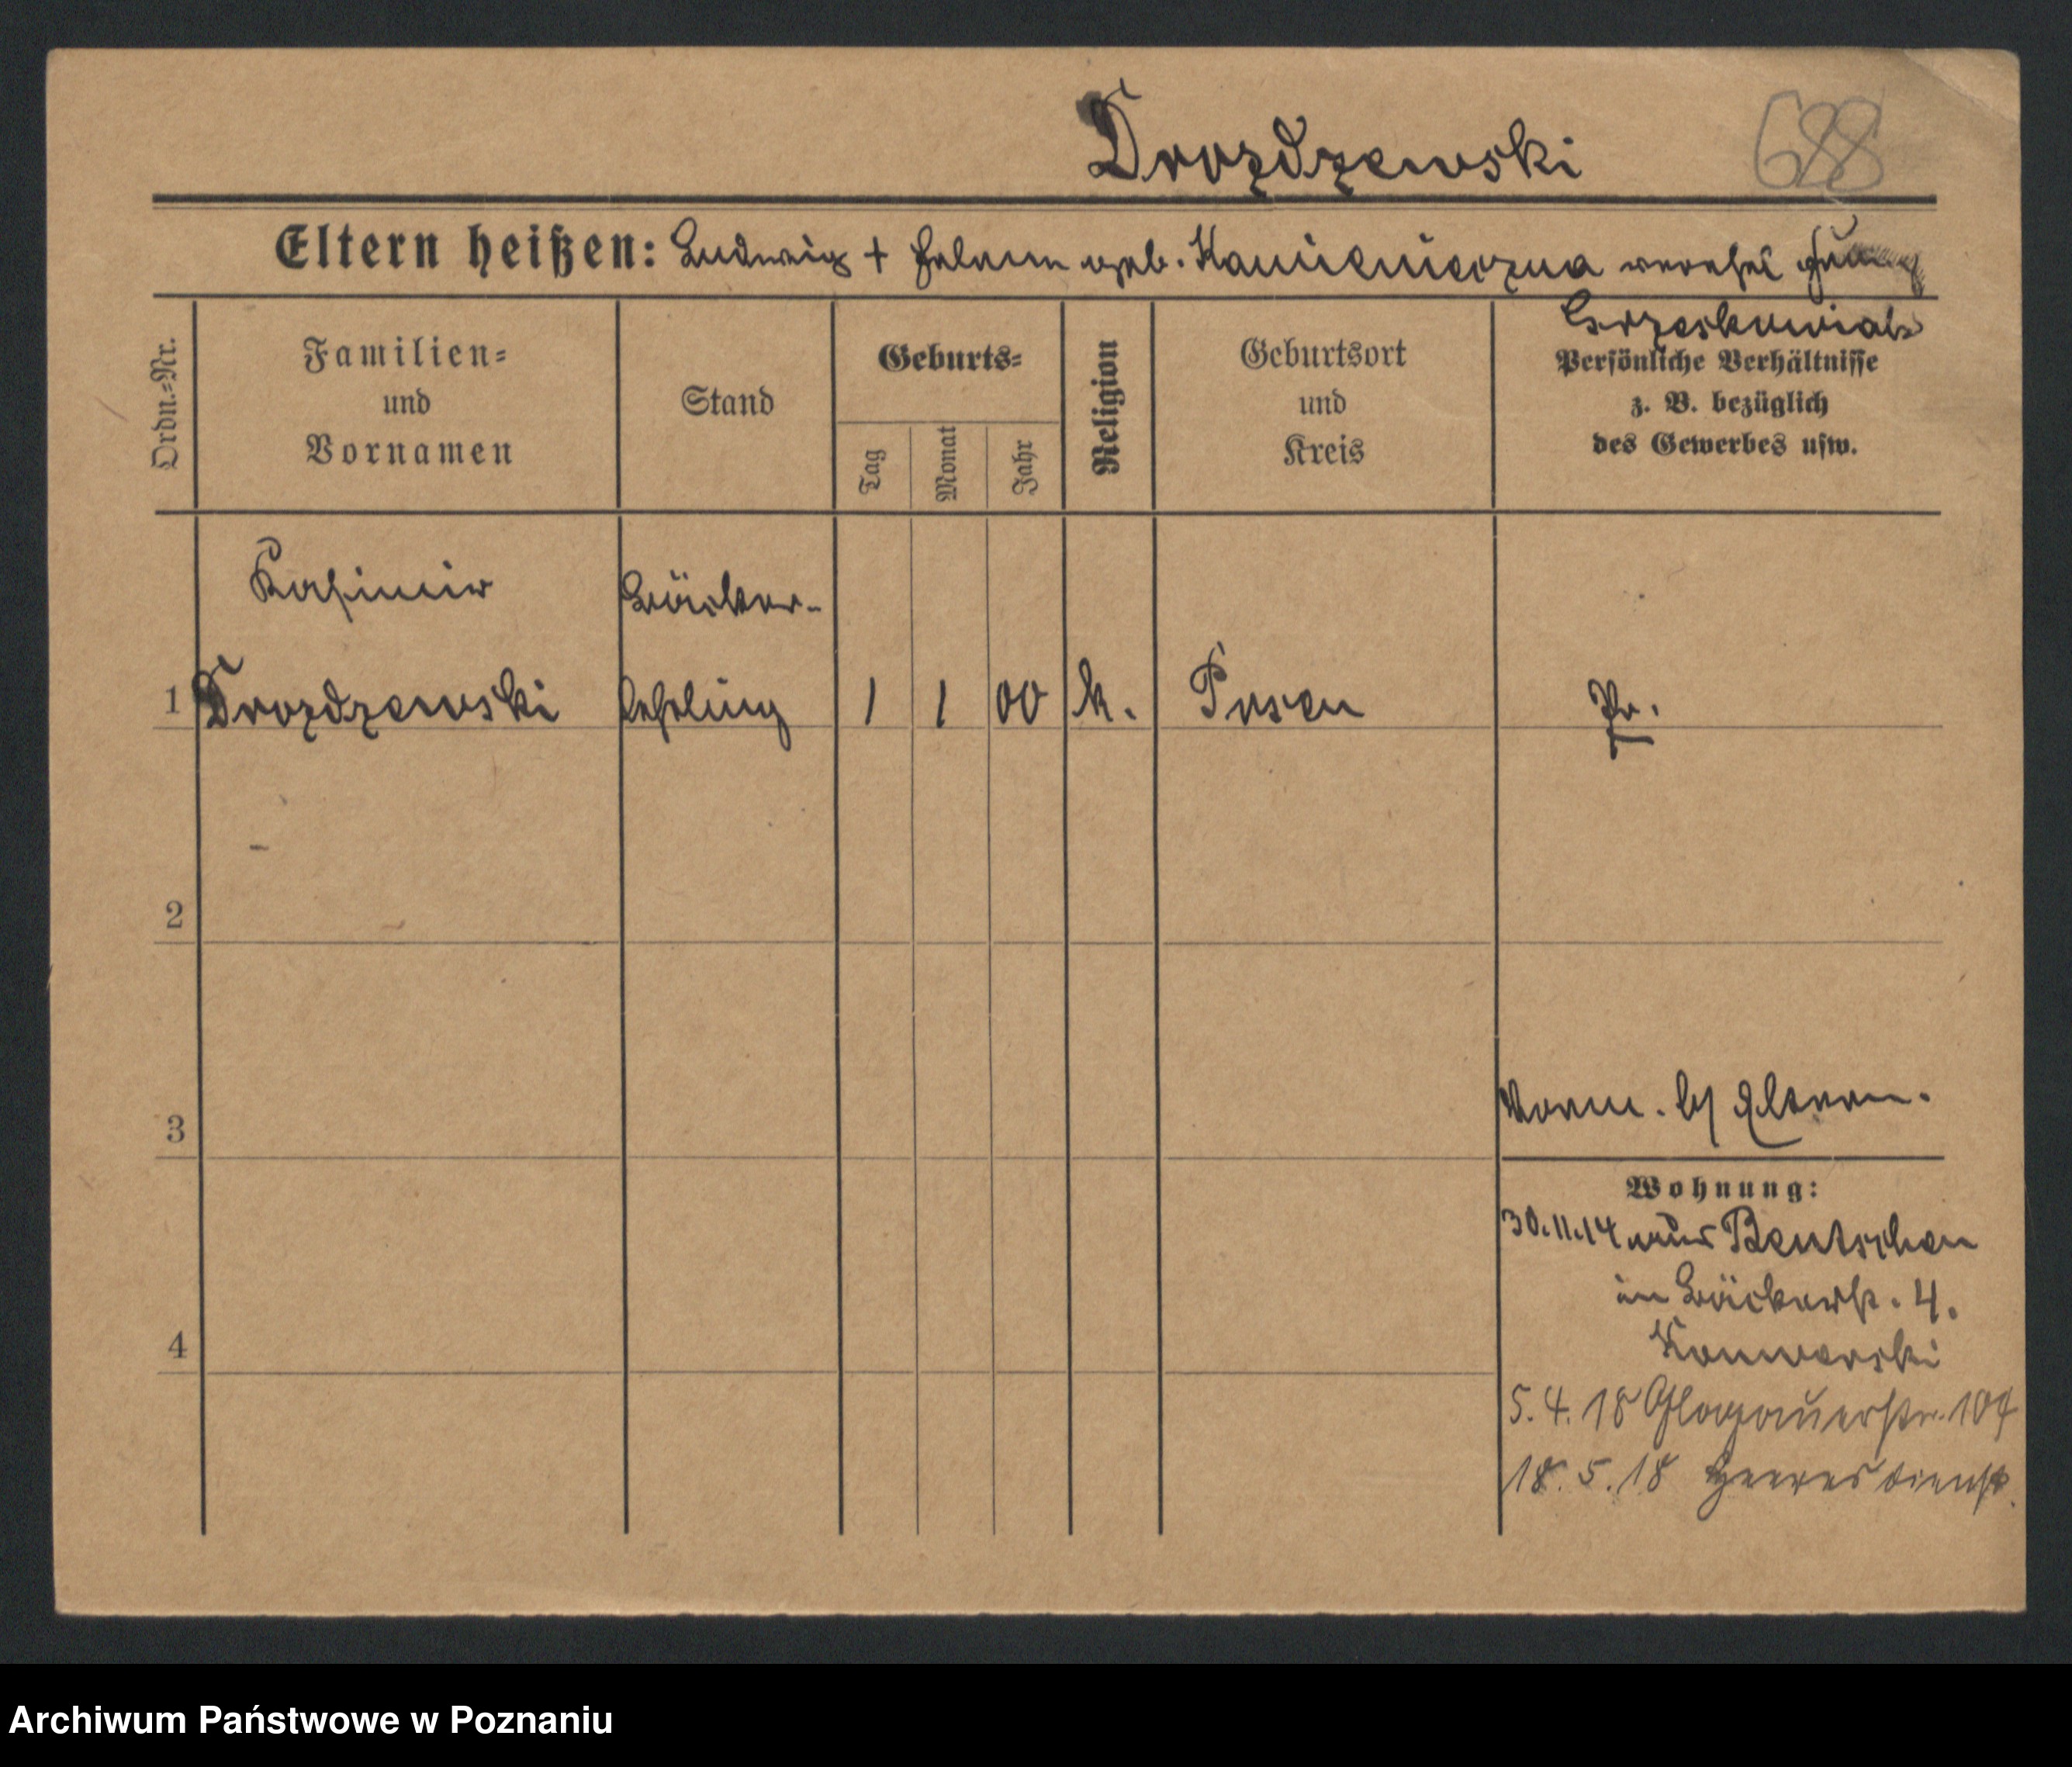 Drozdzewski 688
Eltern heißen: Ludwig + Helene geb. Kamienieczna verehel
Grzeskowiak
Ordn.-Nr.
Familien-
und
Vornamen
Stand
Geburts-
Tag
Monat
Jahr
Religion
Geburtsort
und
Kreis
Persönliche Verhältnisse
z. B. bezüglich
des Gewerbes usw.
Kasimir Bäcker-
1 Drozdzewski lehrling 1 1 00 k. Posen Pr.
2
3
Eltern.
Wohnung:
30.11.14 aus Bentschen
in Bäckerstr. 4.
4
5.4.18 Glogauerstr. 104
18.5.18 Heeresdienst.
Archiwum Państwowe w Poznaniu